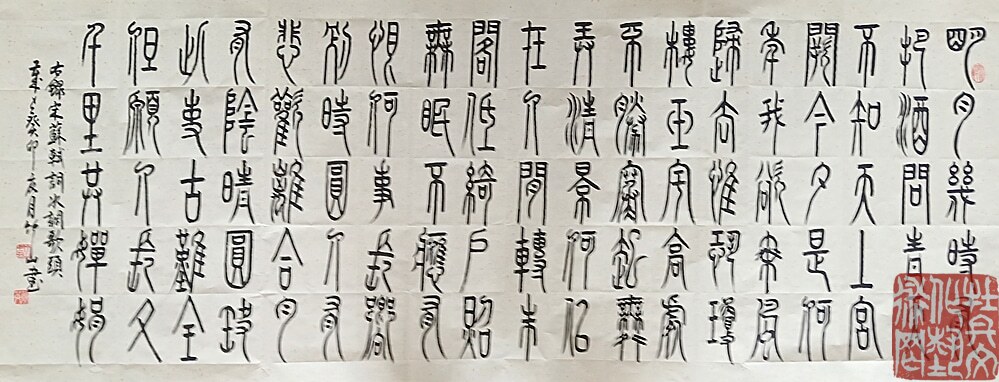 明月幾時有
把酒問青天
不知天上宮
闕今夕是何
年我欲乘風
歸去惟恐瓊
樓玉宇高處
不勝寒起舞
弄清景何似
在人間轉朱
閣低綺戶照
無眠不應有
恨何事長嚮
別時圓人有
悲歡離合月
有陰晴圓缺
此事古難全
但願人長久
千里共嬋娟
右錄宋蘇軾詞水調歌頭
歲在癸卯月竹山書